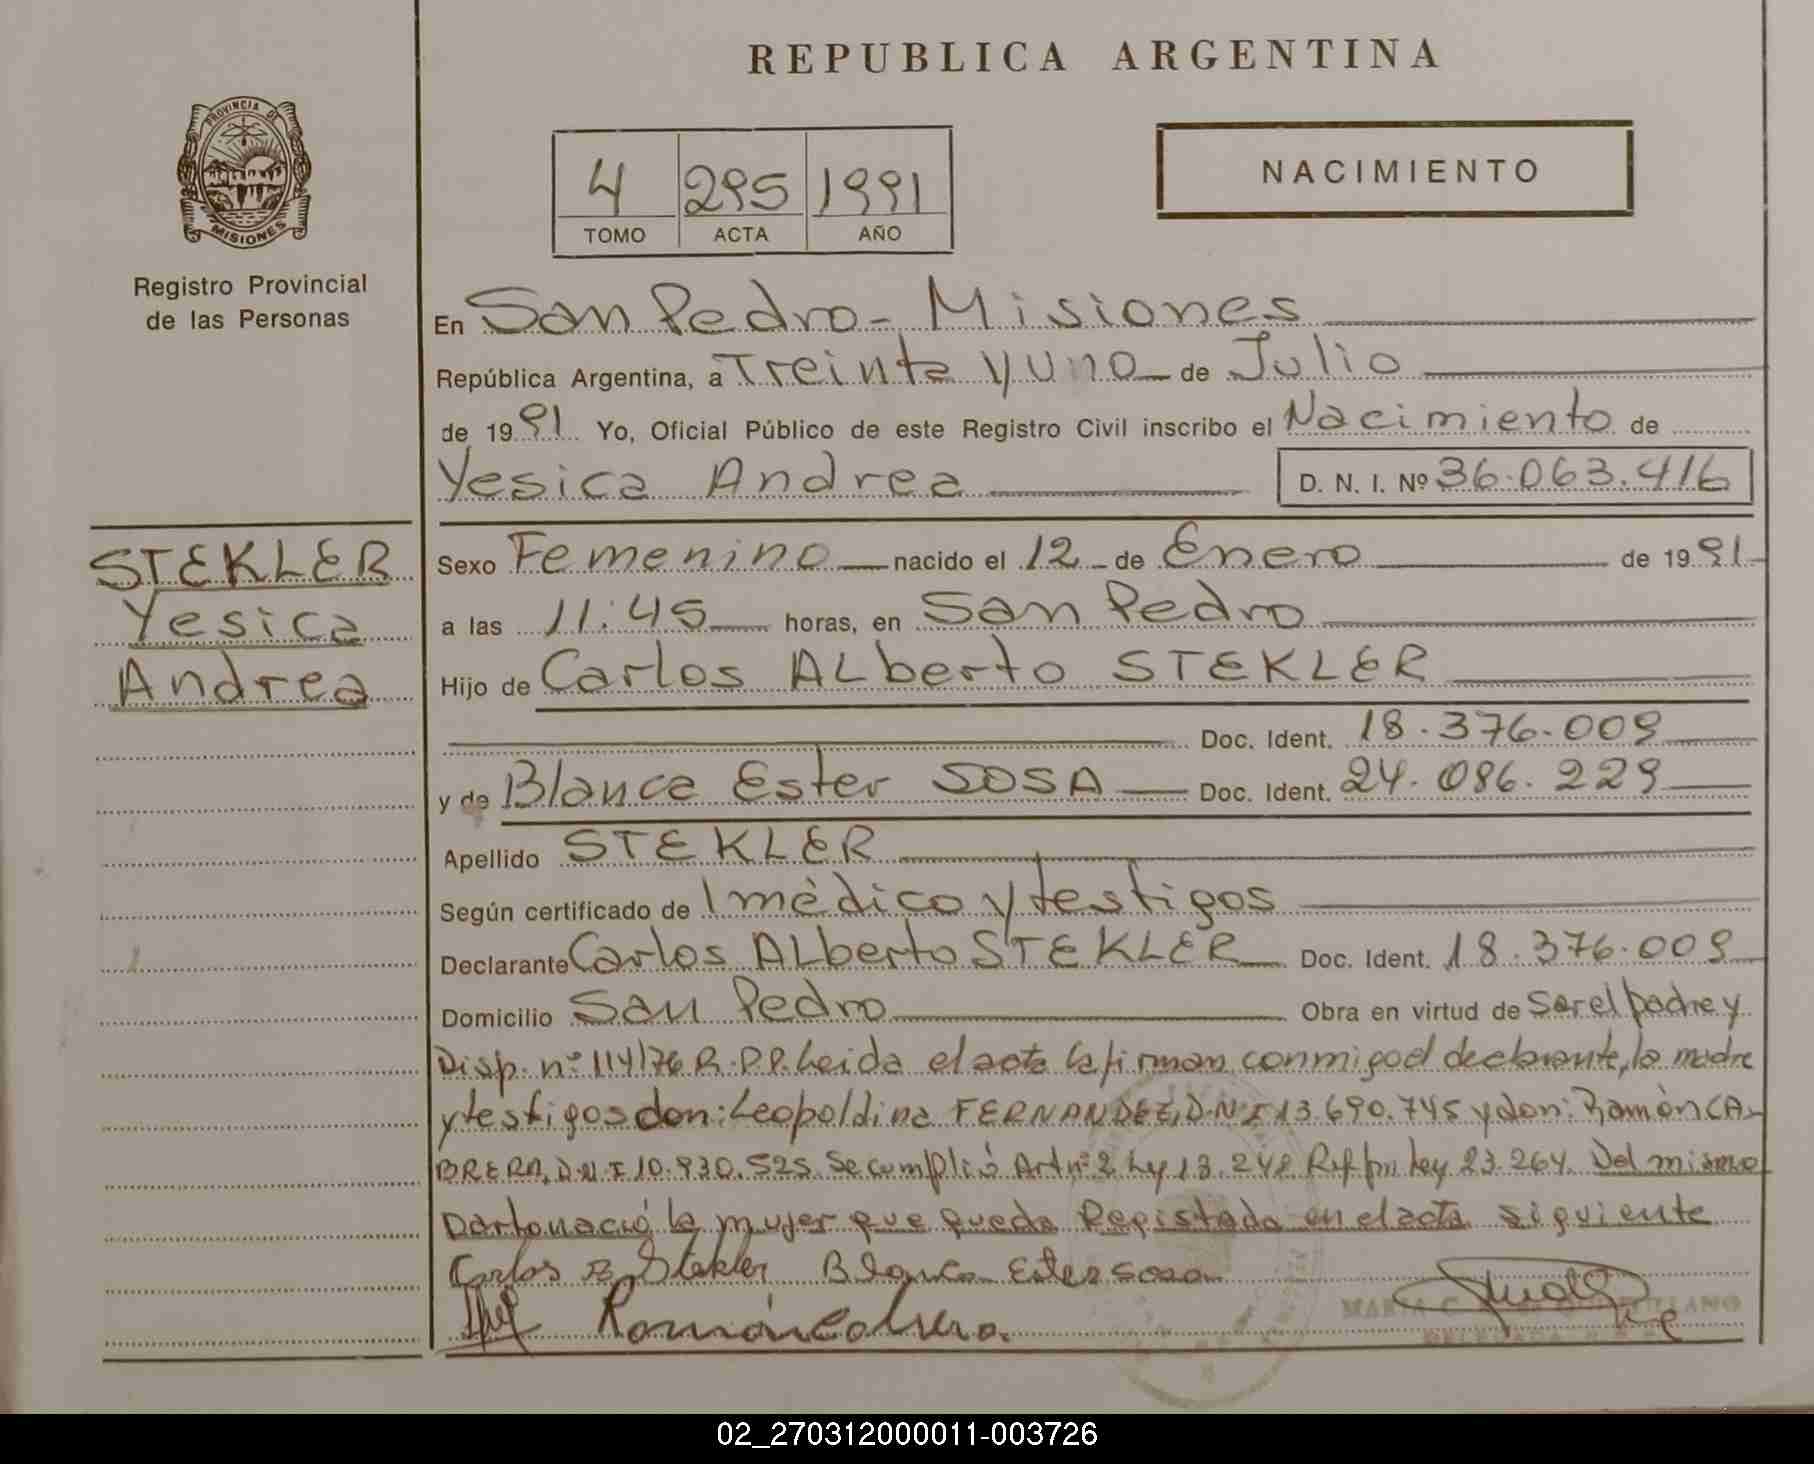 REPUBLICA ARGENTINA
PROVINCIA DE
MISIONES
Registro Provincial
de las Personas
4 295 1991
TOMO ACTA AÑO
NACIMIENTO
En San Pedro - Misiones
República Argentina, a Treinta y uno de Julio
de 1991 Yo, Oficial Público de este Registro Civil inscribo el Nacimiento de
Yesica Andrea D. N. I. Nº 36.063.416
STEKLER
Yesica
Andrea
Sexo Femenino nacido el 12 de Enero de 1991
a las 11:45 horas, en San Pedro
Hijo de Carlos ALberto STEKLER
Doc. Ident. 18.376.009
y de Blanca Ester SOSA Doc. Ident. 24.086.229
Apellido STEKLER
Según certificado de 1 médico y testigos
Declarante Carlos ALberto STEKLER Doc. Ident. 18.376.009
Domicilio San Pedro Obra en virtud de ser el padre y
Disp. nº 114/76 R.P.P. Leida el acta la firman conmigo el declarante, la madre
y testigos don: Leopoldina FERNANDEZ, D.N.I 13.690.745 y don: Ramón CA-
BRERA, D.N.I 10.930.525. Se cumplió Art nº 2 Ley 13.248 Rf. por Ley 23.264. Del mismo
parto nació la mujer que queda Registada en el acta siguiente
Carlos A Stekler Blanca Ester sosa
Ramón Cabrera.
MARIA C.
DELEGADA
02_270312000011-003726